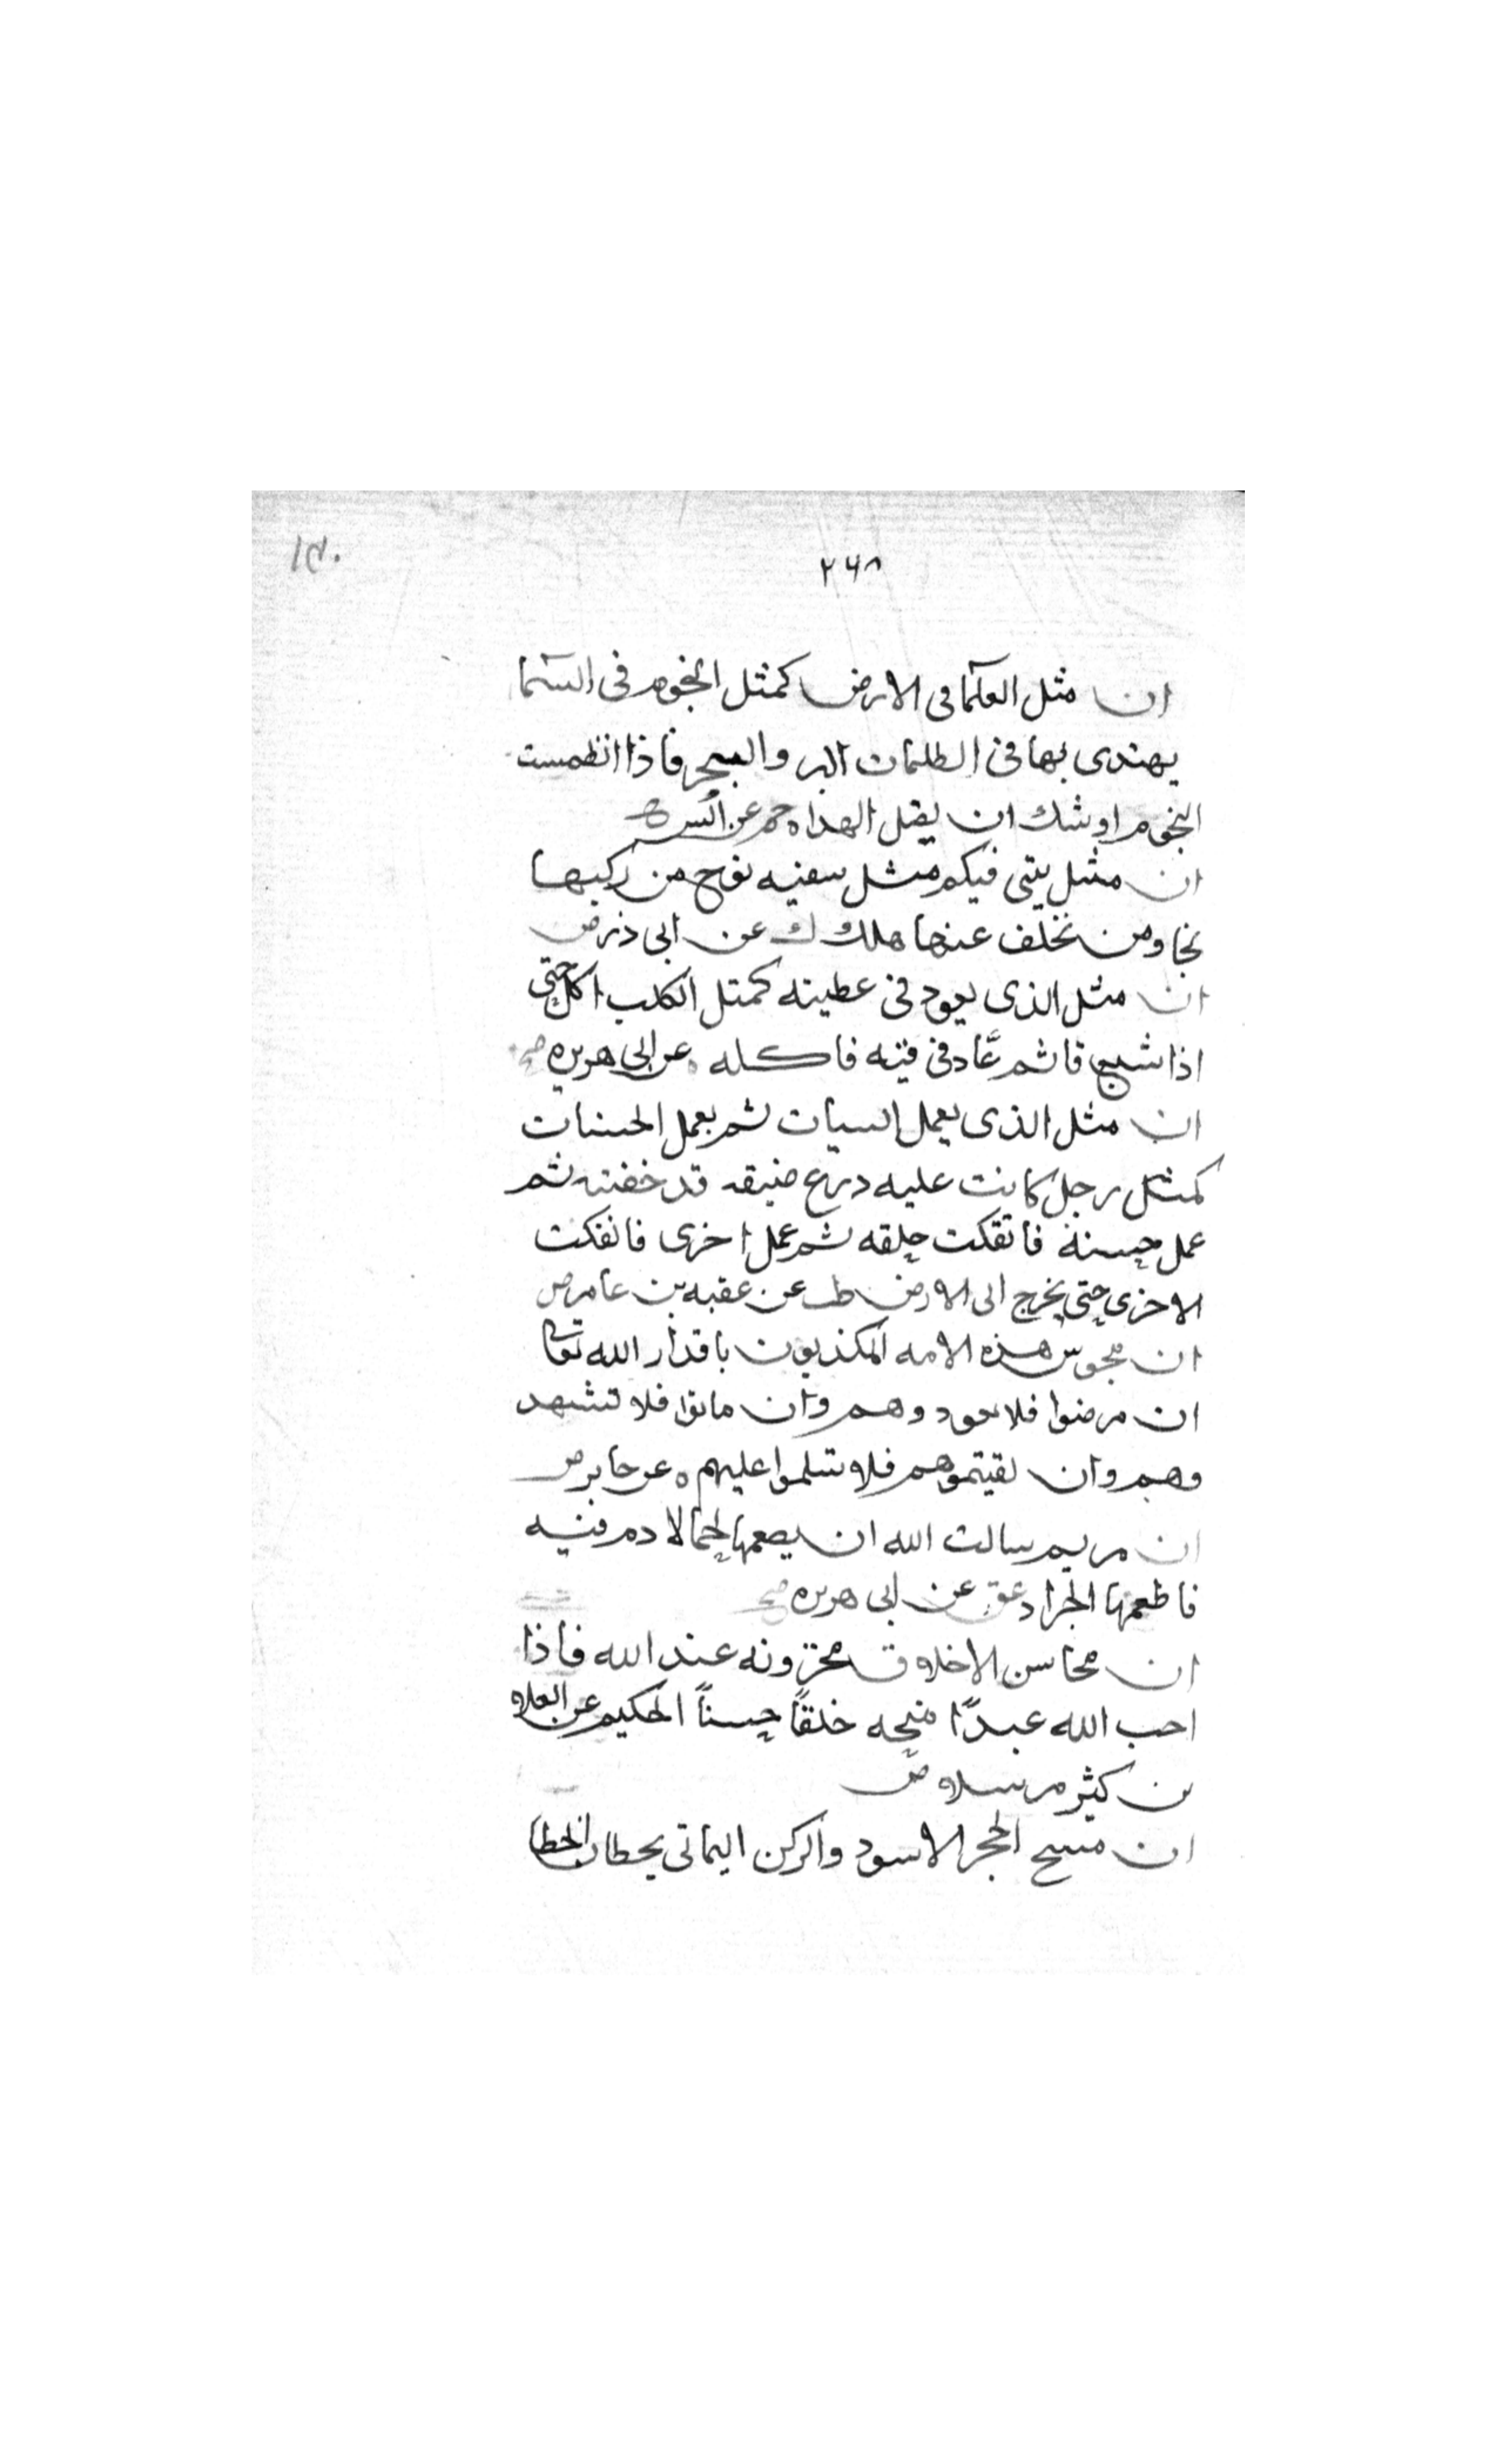 ٢٦٨
ان مثل العلما فى الارض كمثل النجوم فى السما
يهتدى بها فى الظلمات البر والبحر فاذا انطمست
النجوم اوشك ان يضل الهداه حم عن انس
ان مثل بيتى فيكم مثل سفينه نوح من ركبها
نجا ومن تخلف عنها هلك ك عن ابى ذر ض
ان مثل الذى يعود فى عطيته كمثل الكلب اكل حتى
اذا شبع قا ثم عاد فى قيئه فاكله ه عن ابى هريره
ان مثل الذى يعمل السيات ثم يعمل الحسنات
كمثل رجل كانت عليه درع ضيقه قد خنقته ثم
عمل حسنة فانفكت حلقه ثم عمل اخرى فانفكت
الاخرى حتى يخرج الى الارض طب عن عقبه بن عامر ض
ان مجوس هذه الامه المكذبون باقدار الله تعا
ان مرضوا فلا تعود وهم وان ماتوا فلا تشهد
وهم وان لقيتموهم فلا تسلموا عليهم ه عن جابر ض
ان مريم سالت الله ان يطعمها لحما لا دم فيه
فاطعمها الجراد عق عن ابى هريره
ان محاسن الاخلاق مخزونه عند الله فاذا
احب الله عبدًا منحه خلقًا حسنًا الحكيم عن العلاء
بن كثير مرسلا ض
ان مسح الحجر الاسود والركن اليمانى يحطان الخطا